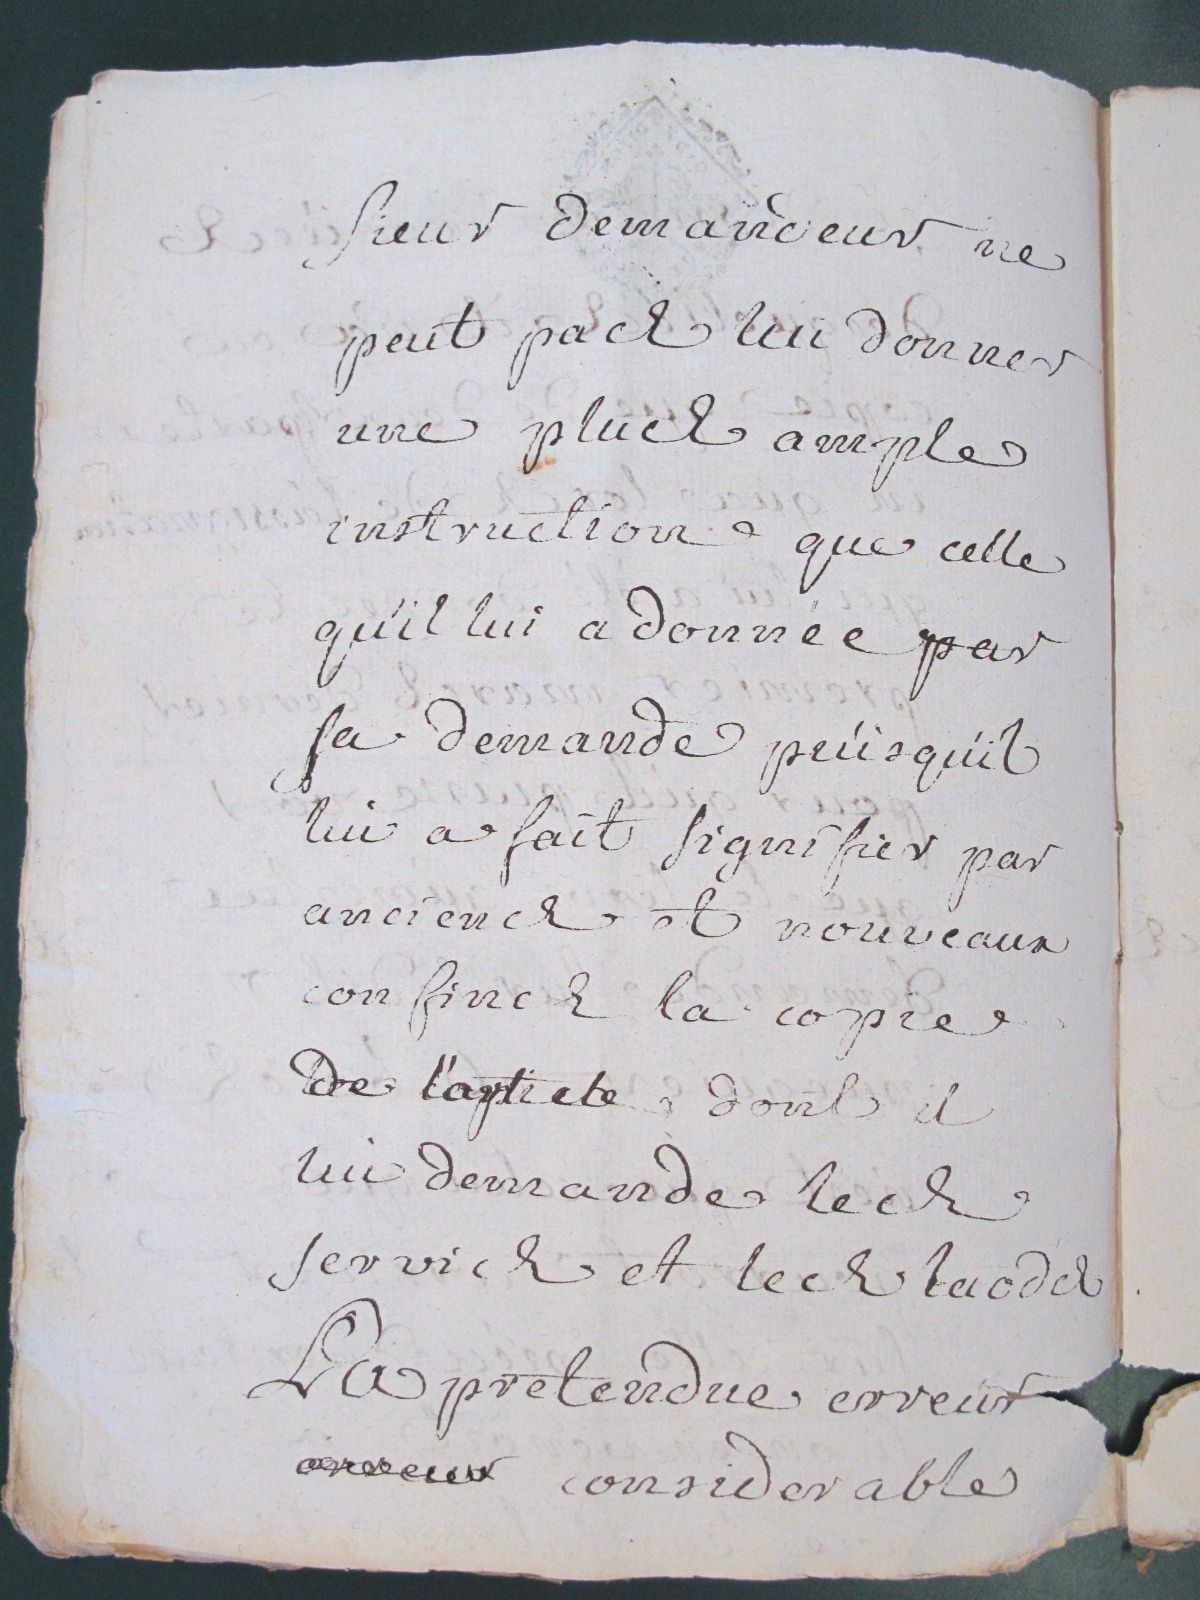 sieur demandeur ne
peut pas lui donner
une plus ample
instruction que celle
qu'il lui a donnée par
sa demande puisqu'il
lui a fait signifier par
anciens et nouveaux
confins la copie
de l'article dont il
lui demande les
servis et les laods
La pretendue erreur
erreur considerable